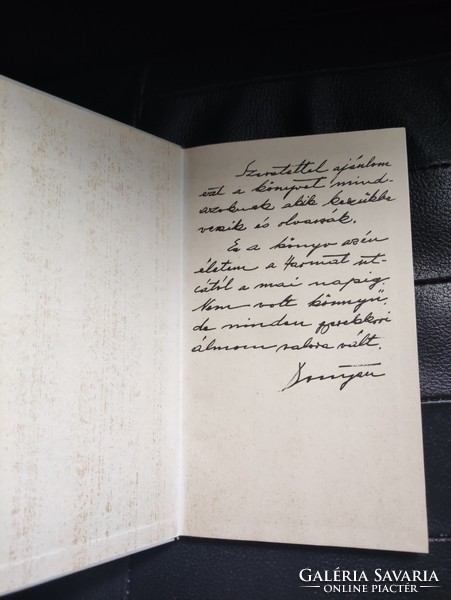 Szeretettel ajánlom
ezt a könyvet mind-
azoknak akik kezükbe
veszik és olvassák.
Ez a könyv azén
életem a Harmat ut-
cától a mai napig.
Nem volt könnyű,
de minden gyerekkori
álmom valora vált.
GALÉRIA SAVARIA
ONLINE PIACTÉR